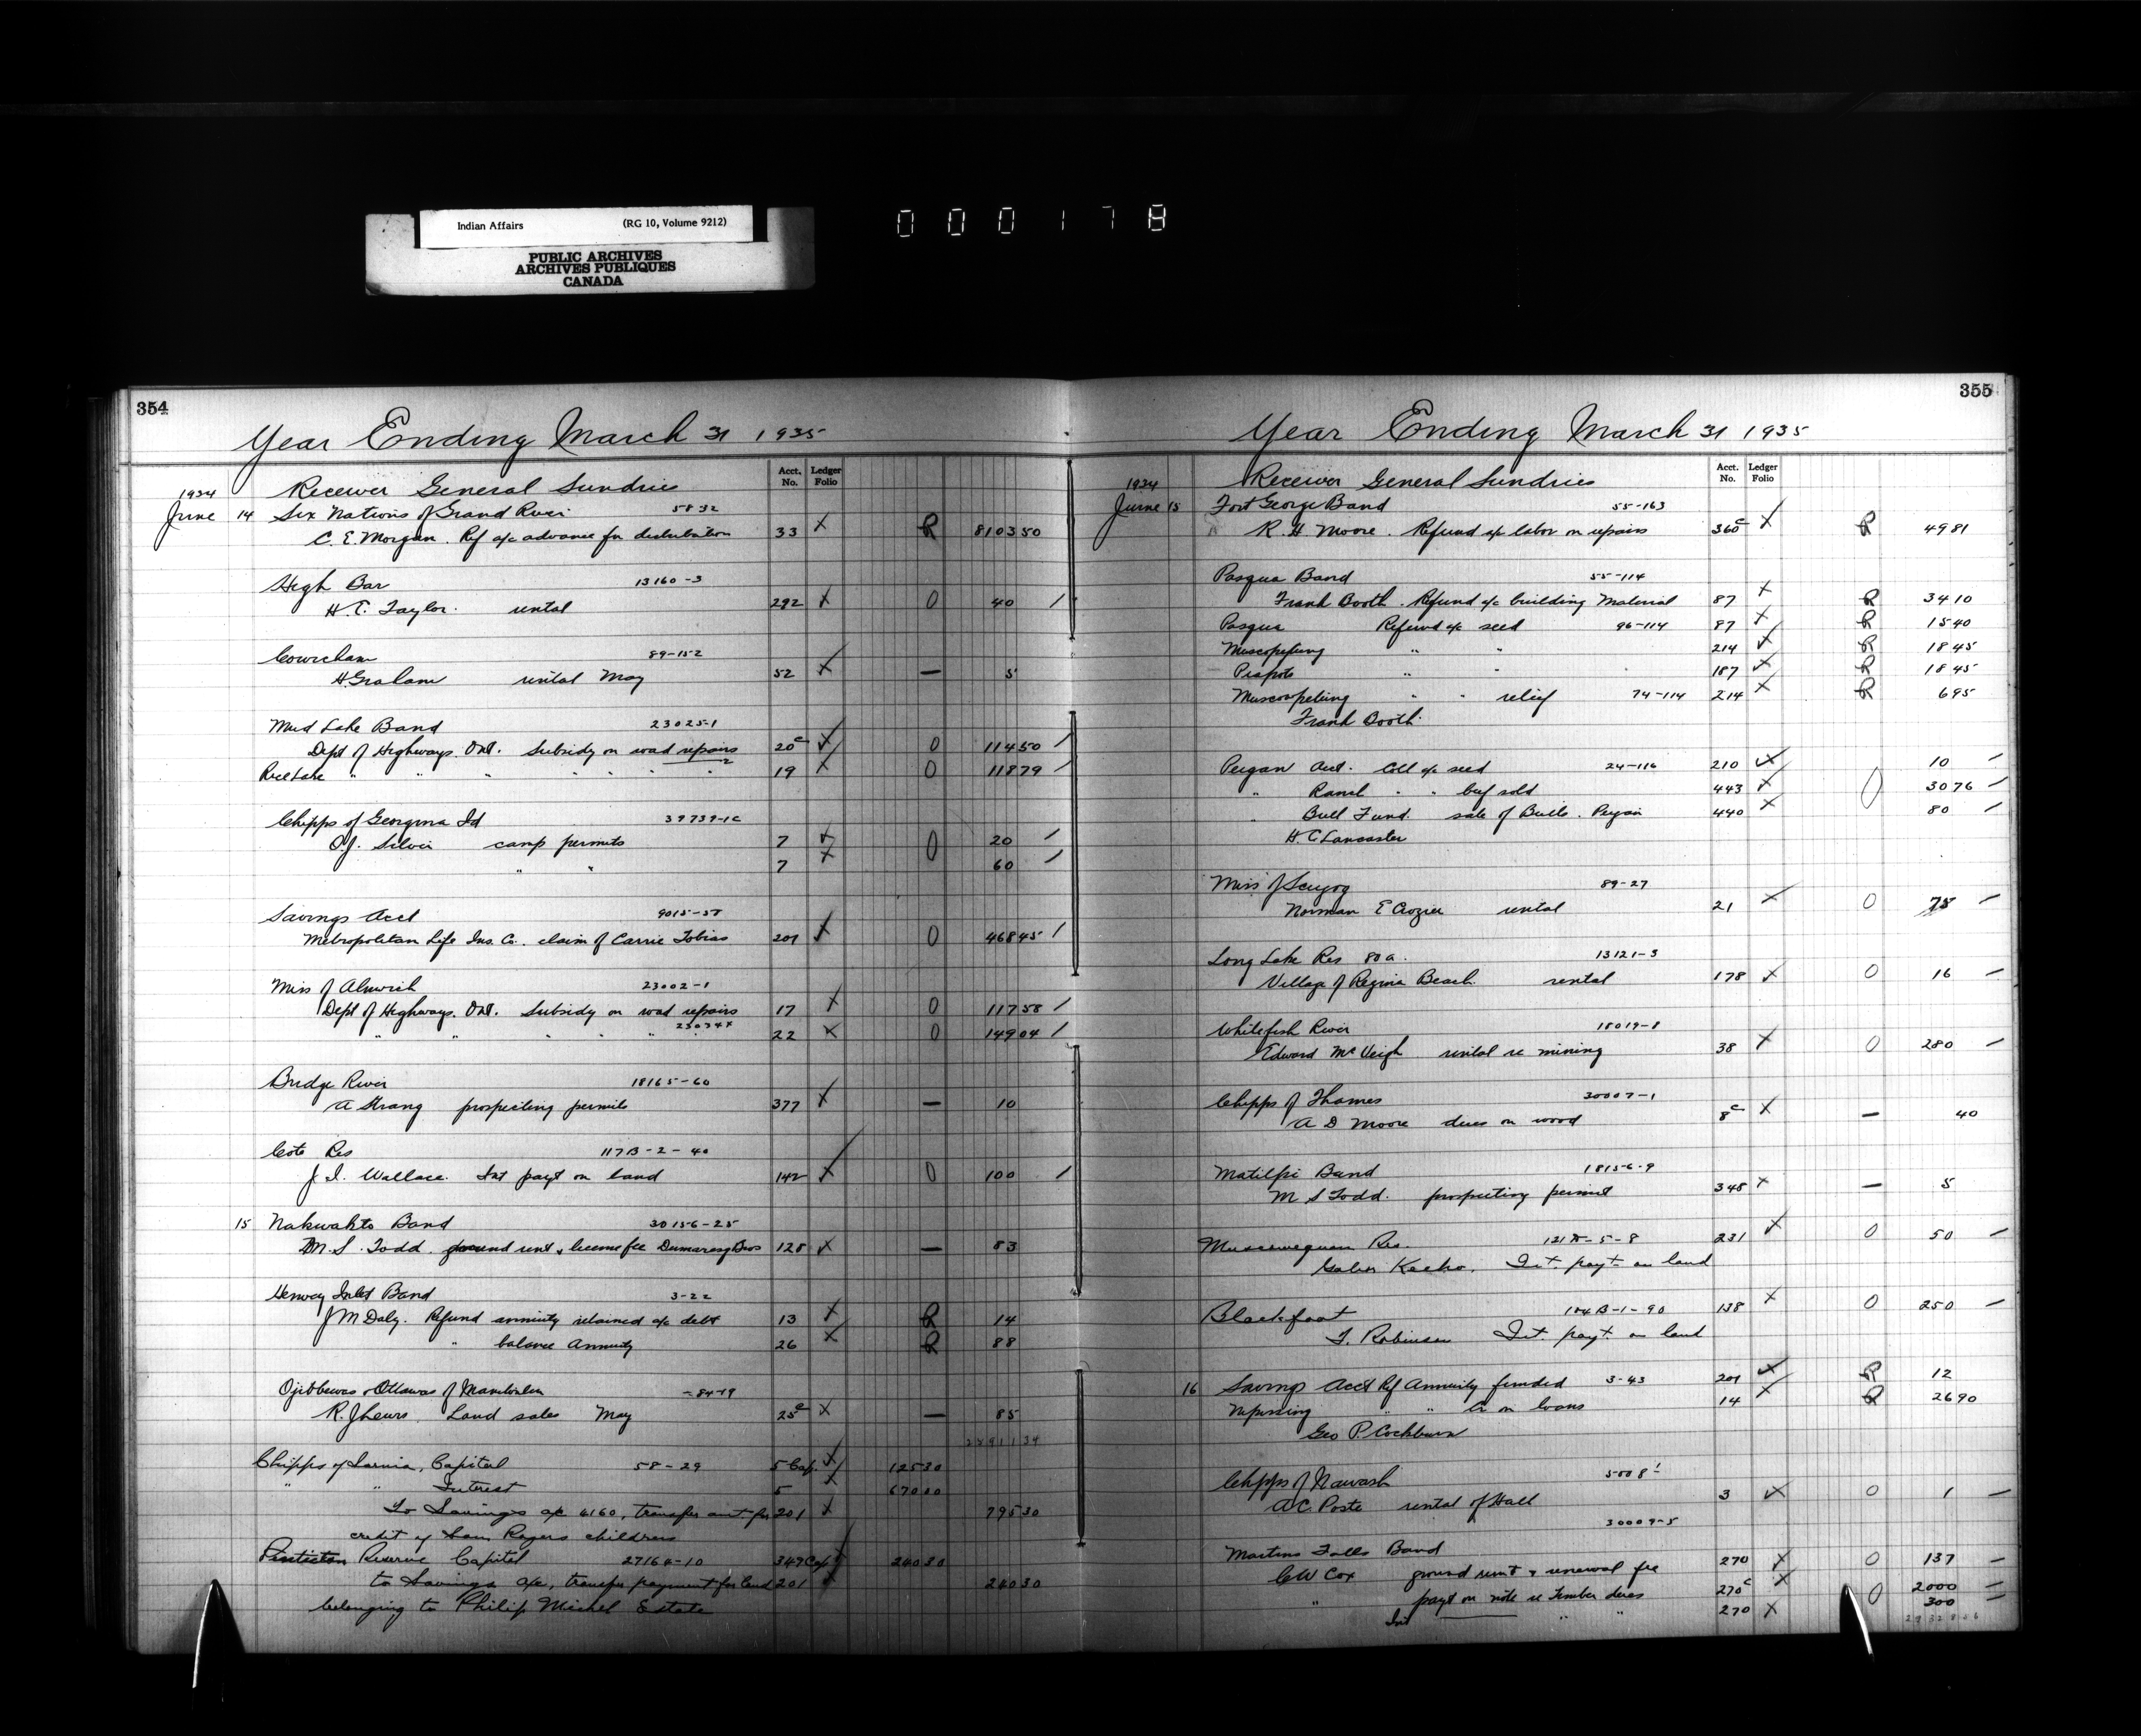 Indian Affairs (RG 10, Volume 9212)
PUBLIC ARCHIVES
ARCHIVES PUBLIQUES
CANADA
000178
354
Year Ending March 31 1935
Acct. No. Ledger Folio
1934 Receiver General Sundries
June 14 Six Nations of Grand River 5832
C. E. Morgan. Ref a/c advance for distribution 33 R 8103 50
High Bar 13160-3
H. E. Taylor. rental 292 0 40
Cowichan 89-152
H. Graham rental May 52 — 5
Mud Lake Band 23025-1
Dept of Highways. Ont. Subsidy on road repairs 20c 0 114 50
Rice Lake " " " " " " " 19 0 118 79
Chipps of Georgina Id 39739-1c
O.J. Silver camp permits 7 0 20
" " 7 60
Savings Acct 9015-37
Metropolitan Life Ins. Co. claim of Carrie Tobias 201 0 468 45
Miss of Alnwick 23002-1
Dept of Highways. Ont. Subsidy on road repairs 17 0 117 58
" " " " " " 22 0 149 04
Bridge River 18165-60
A Strang prospecting permits 377 — 10
Cote Res 117B-2-40
J. I. Wallace. Int payt on land 142 0 100
15 Nakwakto Band 30156-25
M. S. Todd. ground rent & license fee Dumaresq Bros 128 — 83
Henvey Inlet Band 3-22
J M Daly. Refund annuity retained a/c debt 13 R 14
" balance Annuity 26 R 88
Ojibbewas & Ottawas of Manitoulin -84-19
R. J Lewis. Land sales May 25c — 85
Chipps of Sarnia, Capital 58-29 5 Cap. 125 30
" " Interest 5 670 00
To Savings a/c 4160, transfer amt for 201 795 30
credit of Sam Rogers children
Penticton Reserve Capital 27164-10 349 Cap 240 30
to Savings a/c, transfer payment for land 201 240 30
belonging to Philip Michel Estate
355
Year Ending March 31 1935
Acct. No. Ledger Folio
1934 Receiver General Sundries
June 15 Fort George Band 55-163
R. H Moore. Refund a/c labor on repairs 360c R 49 81
Pasqua Band 55-114
Frank Booth. Refund a/c building Material 87 R 34 10
Pasqua Refund a/c seed 96-114 87 R 15 40
Muscopetung " " 214 R 18 45
Piapots " " 187 R 18 45
Muscowpetung " " relief 74-114 214 R 6 95
Frank Booth.
Peigan Acct. Coll a/c seed 24-116 210 10
" Ranch " " beef sold 443 0 30 76
" Bull Fund. sale of Bulls. Peigan 440 80
H. C Lancaster
Miss of Scugog 89-27
Norman E Crozier rental 21 0 75
Long Lake Res 80a. 13121-3
Village of Regina Beach. rental 178 0 16
Whitefish River 18019-8
Edward McVeigh rental re mining 38 0 280
Chipps of Thames 30007-1
A D Moore dues on wood 8c — 40
Matilpi Band 18156-9
M S Todd. prospecting permit 348 — 5
Muscowequan Res. 121B-5-8 231 0 50
Int. payt on land
Blackfoot 104B-1-90 138 0 250
T. Robinson Int. payt. on land
16 Savings Acct Ref Annuity funded 3-43 201 R 12
Nipissing " " Cr on loans 14 R 26 90
Geo P. Cockburn
Chipps of Nawash 5008-1
A C. Poste rental of Hall 3 0 1
30009-5
Martins Falls Band
C W Cox ground rent & renewal fee 270 0 137
" payt on note re timber dues 270c 0 2000
Int " " 270 300